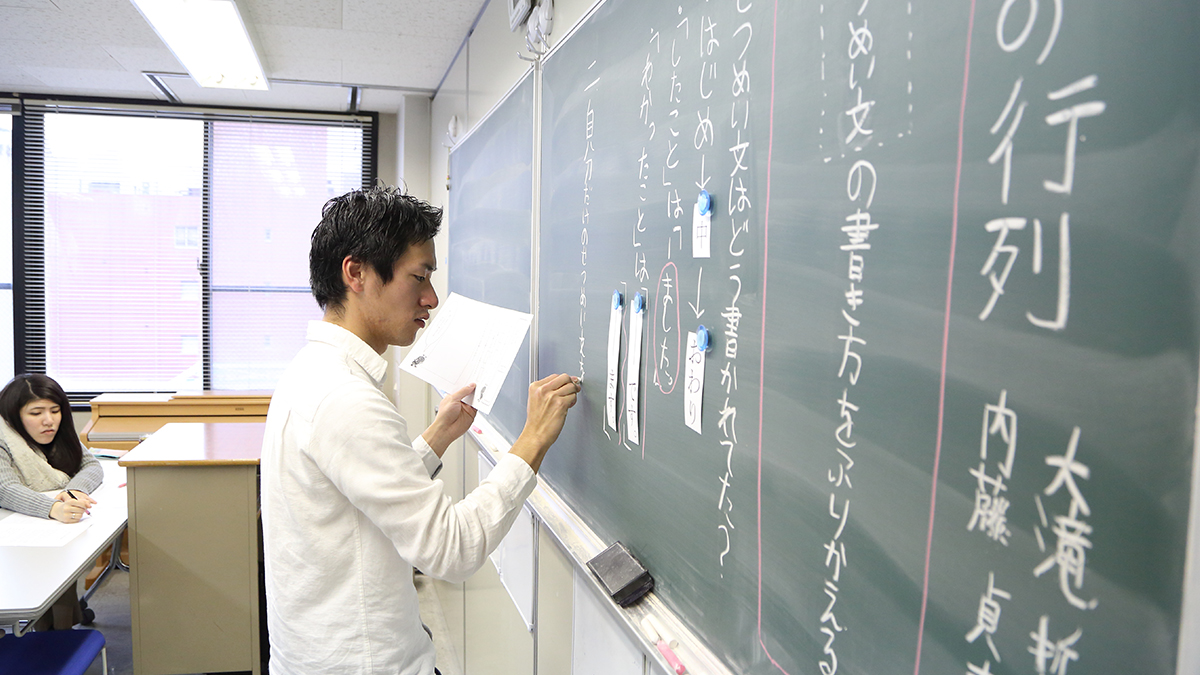 の行列
大滝 哲
内藤 貞
つめい文の書き方をふりかえる
つめい文はどう書かれてた？
はじめ→中→おわり
・「したこと」は「ーました。」
「わかったこと」は「です
ます
二 自分だけのせつめい文を